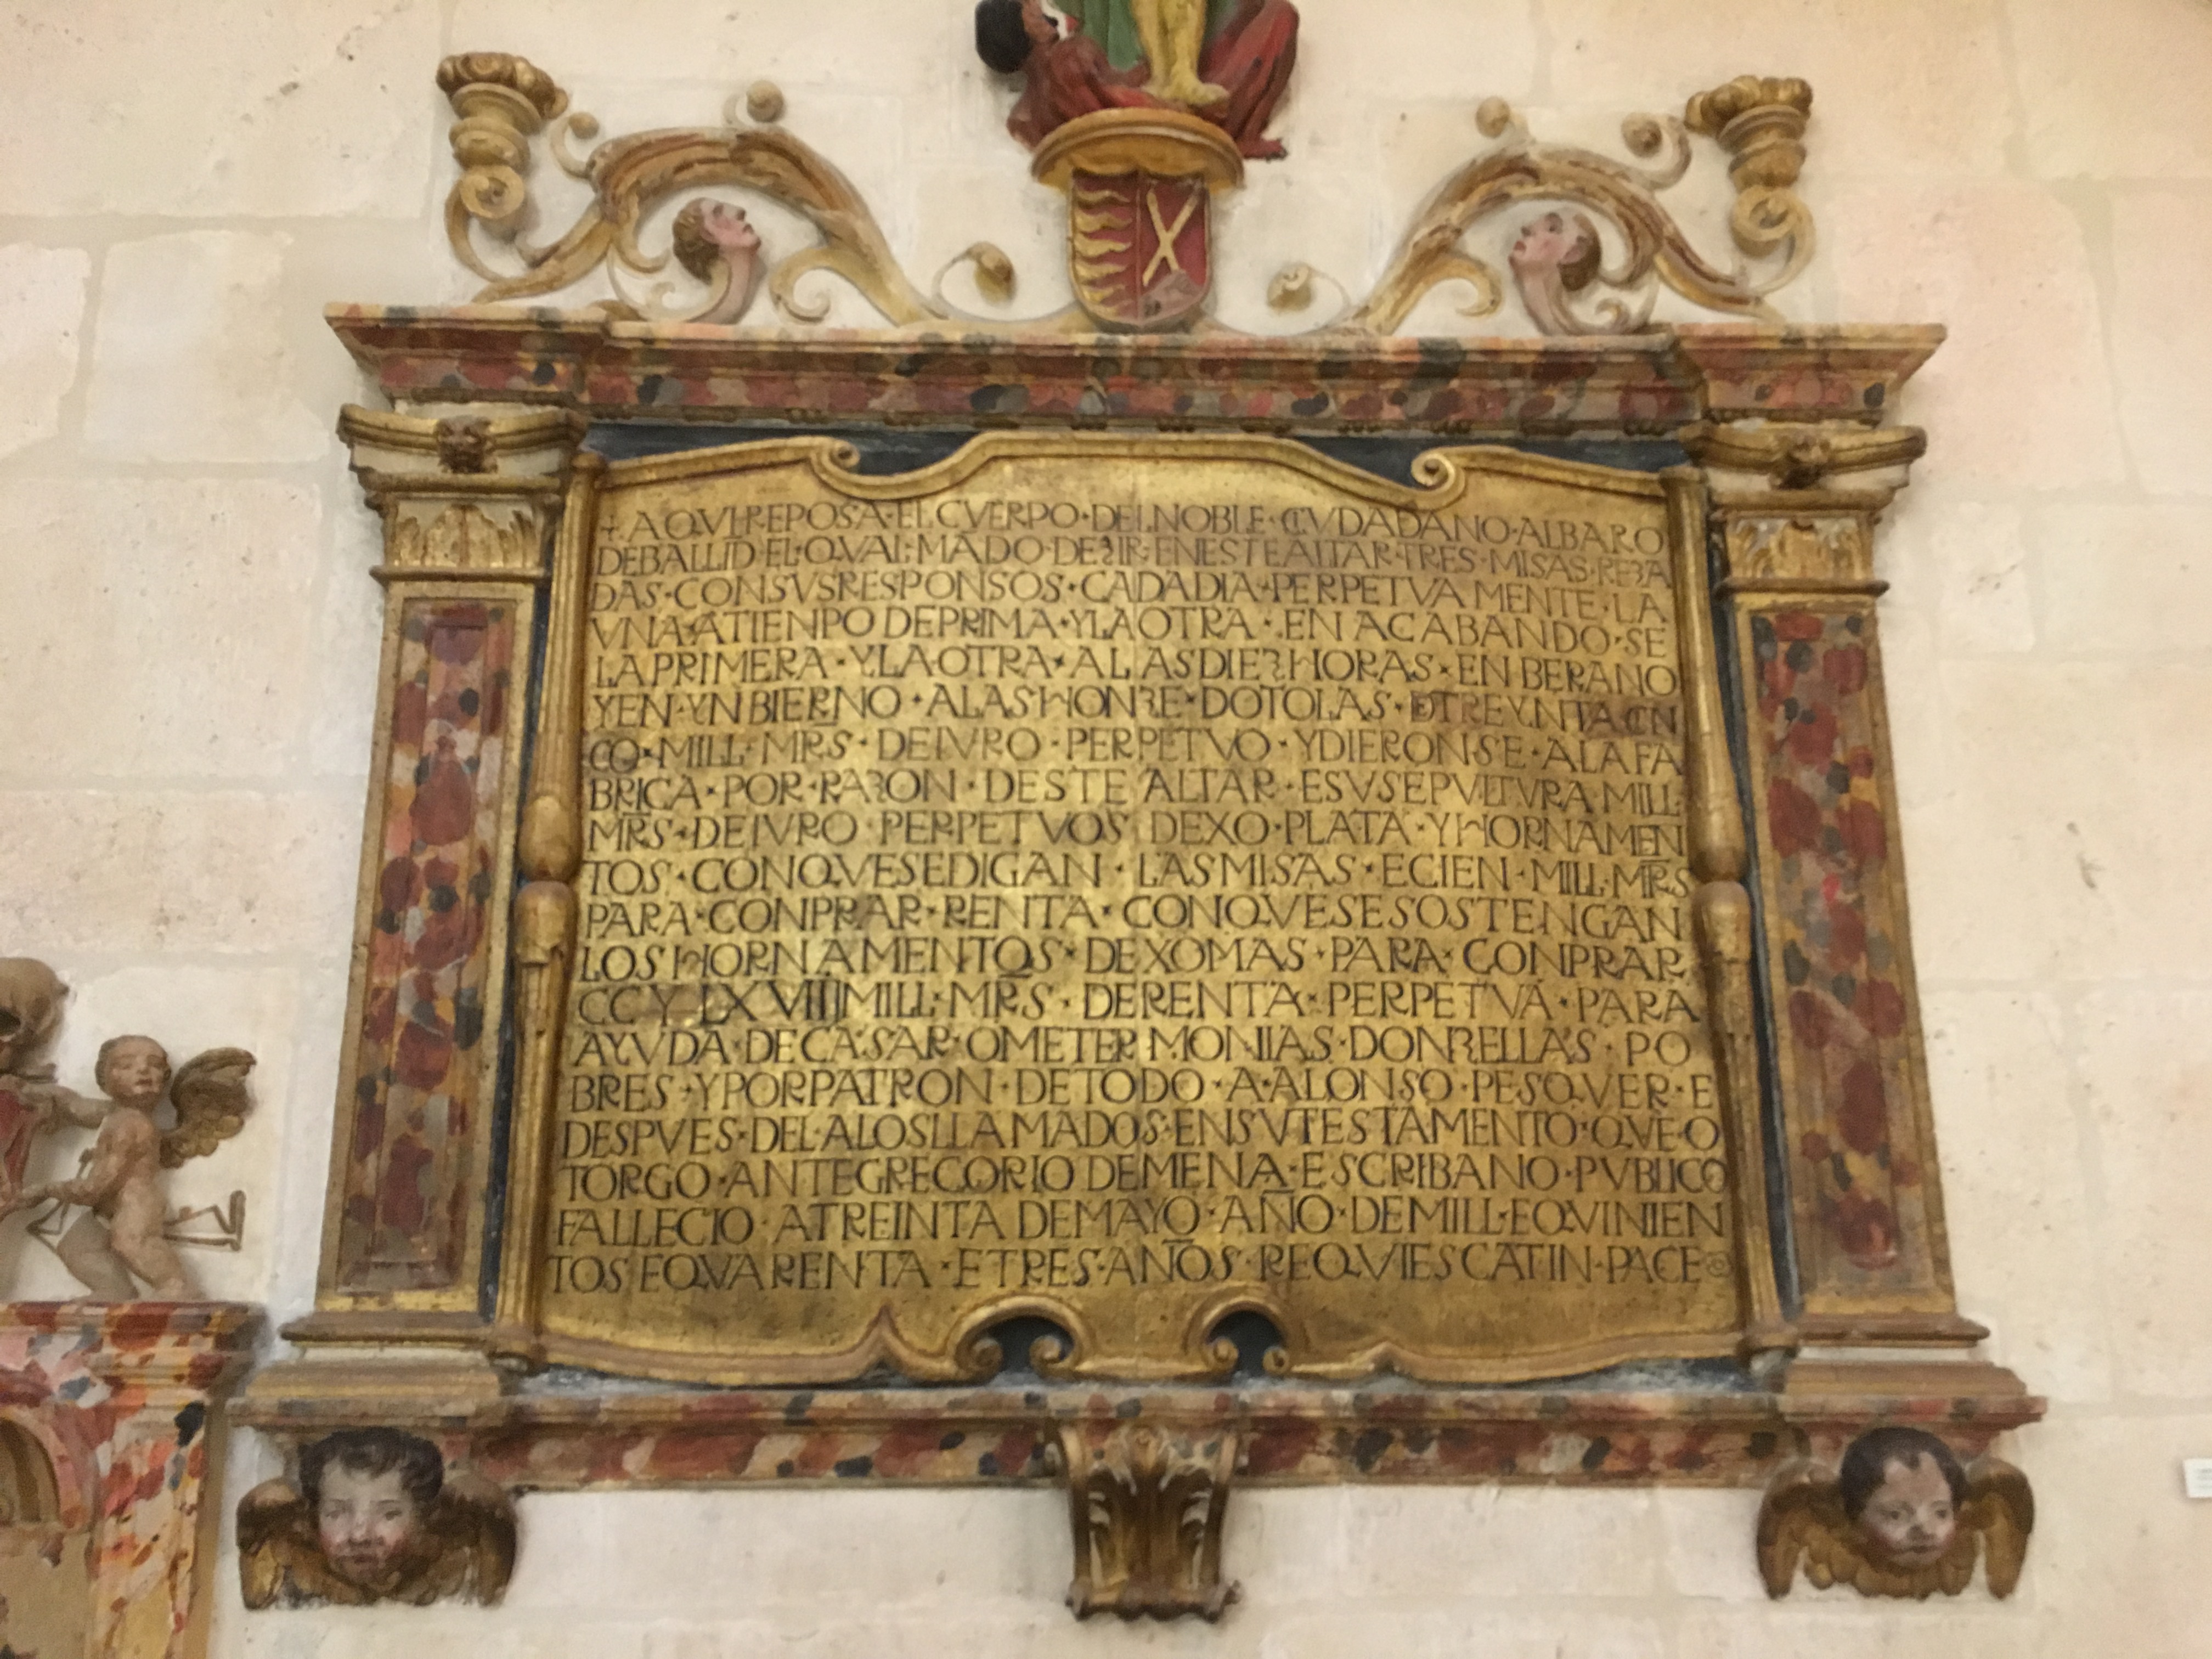 + AQVI·REPOSA·EL CVERPO·DEL NOBLE·CIVDADANO·ALBARO
DEBALLID EL·QVAL·MADO·DEZIR·ENESTEALTAR·TRES·MISAS·REZA
DAS·CONSVSRESPONSOS·CADADIA·PERPETVAMENTE·LA
VNA·ATIENPO DEPRIMA·YLAOTRA·EN ACABANDO·SE
LAPRIMERA·YLAOTRA·ALASDIEZ HORAS·EN BERANO
YEN·YNBIERNO·ALASHONZE·DOTOLAS·DTREYNTACIN
CO·MILL·MRS·DEIVRO·PERPETVO·YDIERONSE·ALAFA
BRICA·POR·RAZON·DESTE ALTAR·ESVSEPVLTVRA MILL·
MRS·DEIVRO·PERPETVOS DEXO·PLATA·YHORNAMEN
TOS·CONQVESEDIGAN·LASMISAS·ECIEN·MILL·MRS
PARA·CONPRAR·RENTA·CONQVESESOSTENGAN
LOSHORNAMENTOS·DEXOMAS·PARA·CONPRAR
CCY LXVIIJMILL·MRS·DERENTA·PERPETVA·PARA
AYVDA·DECASAR·OMETER MONIAS·DONZELLAS·PO
BRES·YPORPATRON·DETODO·A·ALONSO·PESQVER·E
DESPVES·DEL·ALOSLLAMADOS·ENSVTESTAMENTO·QVE·O
TORGO·ANTEGREGORIO DEMENA·ESCRIBANO·PVBLICO
FALLECIO·ATREINTA DEMAYO·AÑO·DEMILL·EQVINIEN
TOS EQVARENTA·ETRES·AÑOS·REQVIESCATIN·PACE